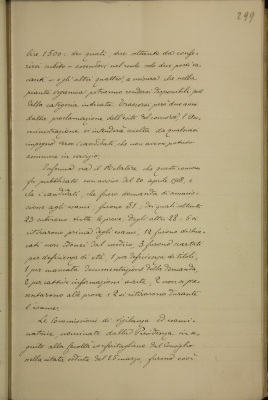 299
lire 1500: dei quali, due attuate da confe-
rirsi subito - essendovi nel ruolo solo due posti va-
canti - e gli altri quattro, a misura che nella
pianta organica potranno rendersi disponibili posti
della categoria indicata. Trascorsi però due anni
dalla proclamazione dell'esito del concorso, l'Am-
ministrazione si intenderà sciolta da qualsiasi
impegno verso i candidati che non avesse potuto
assumere in servizio.
Informa poi il Relatore che questo concorso
fu pubblicato con avviso del 20 aprile 1908, e
che i candidati, che fecero domanda di ammis-
sione agli esami, furono 51, dei quali attuate
23 subirono tutte le prove. Degli altri 28: 5 si
ritirarono prima degli esami, 12 furono dichia-
rati non idonei dal medico, 3 furono scartati
per deficienza di età, 1 per deficienza di titoli,
1 per mancata documentazione della domanda,
2 per cattive informazioni avute, 2 non si pre-
sentarono alle prove e 2 si ritirarono durante
l'esame.
La Commissione di vigilanza ed esami-
natrice, nominata dalla Presidenza, in se-
guito alla facoltà conferitagliene dal Consiglio
nella citata seduta del 28 marzo, furono così